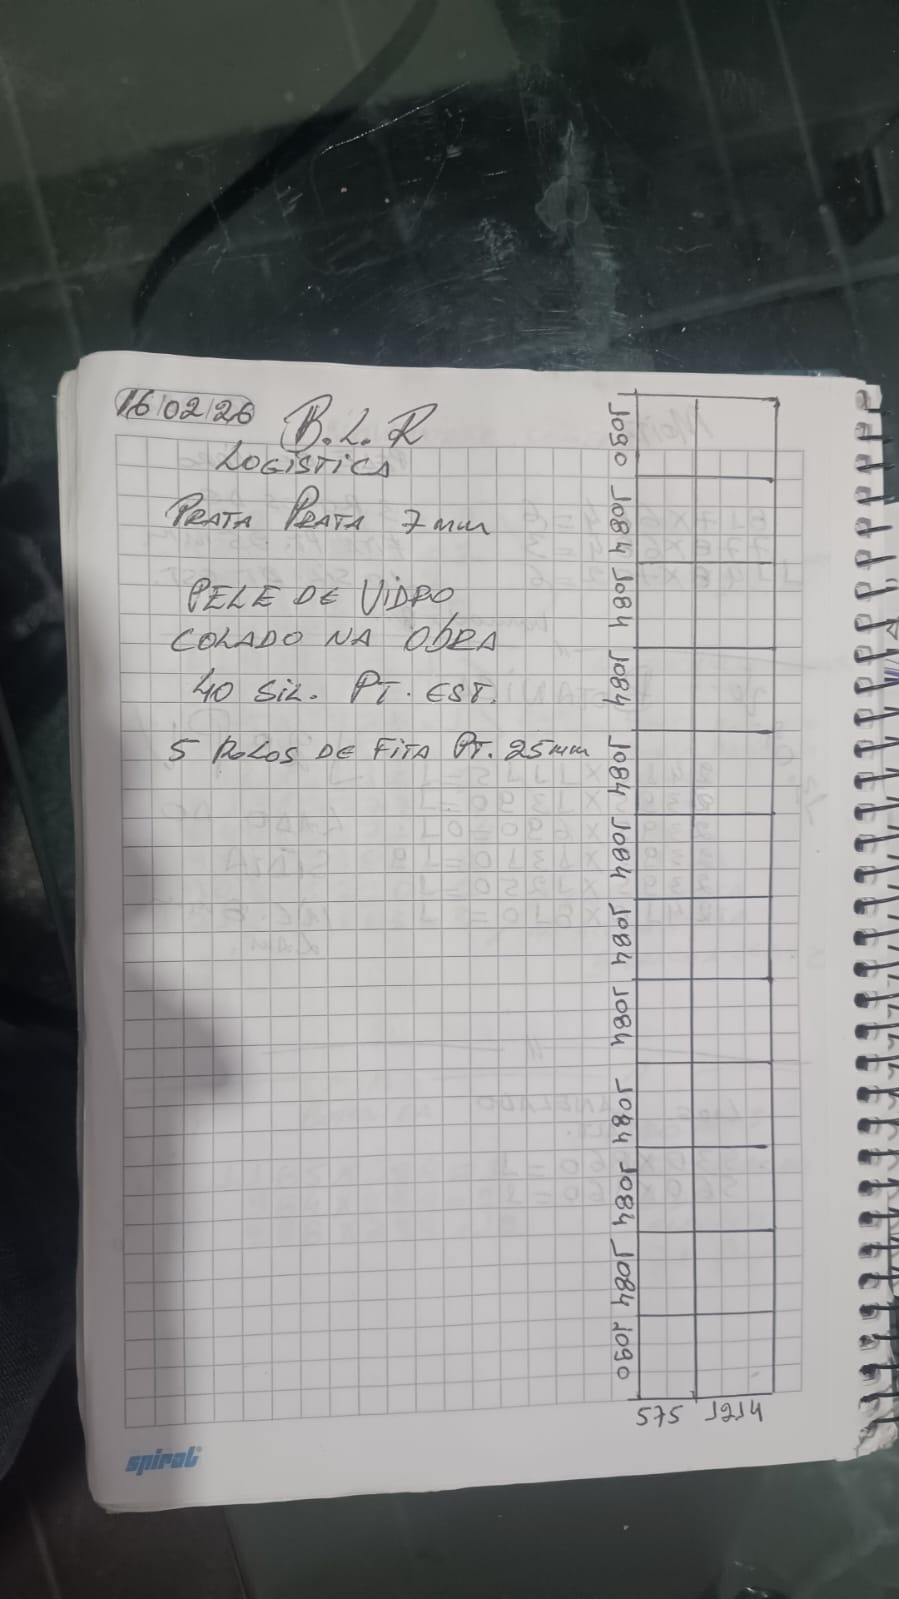 16/02/26
B.L.R
LOGÍSTICA
PRATA PRATA 7mm
PELE DE VIDRO
COLADO NA OBRA
40 SIL. PT. EST.
5 ROLOS DE FITA PT. 25mm
1090
1084
1084
1084
1084
1084
1084
1084
1084
1084
1084
1090
575 1214
spiral